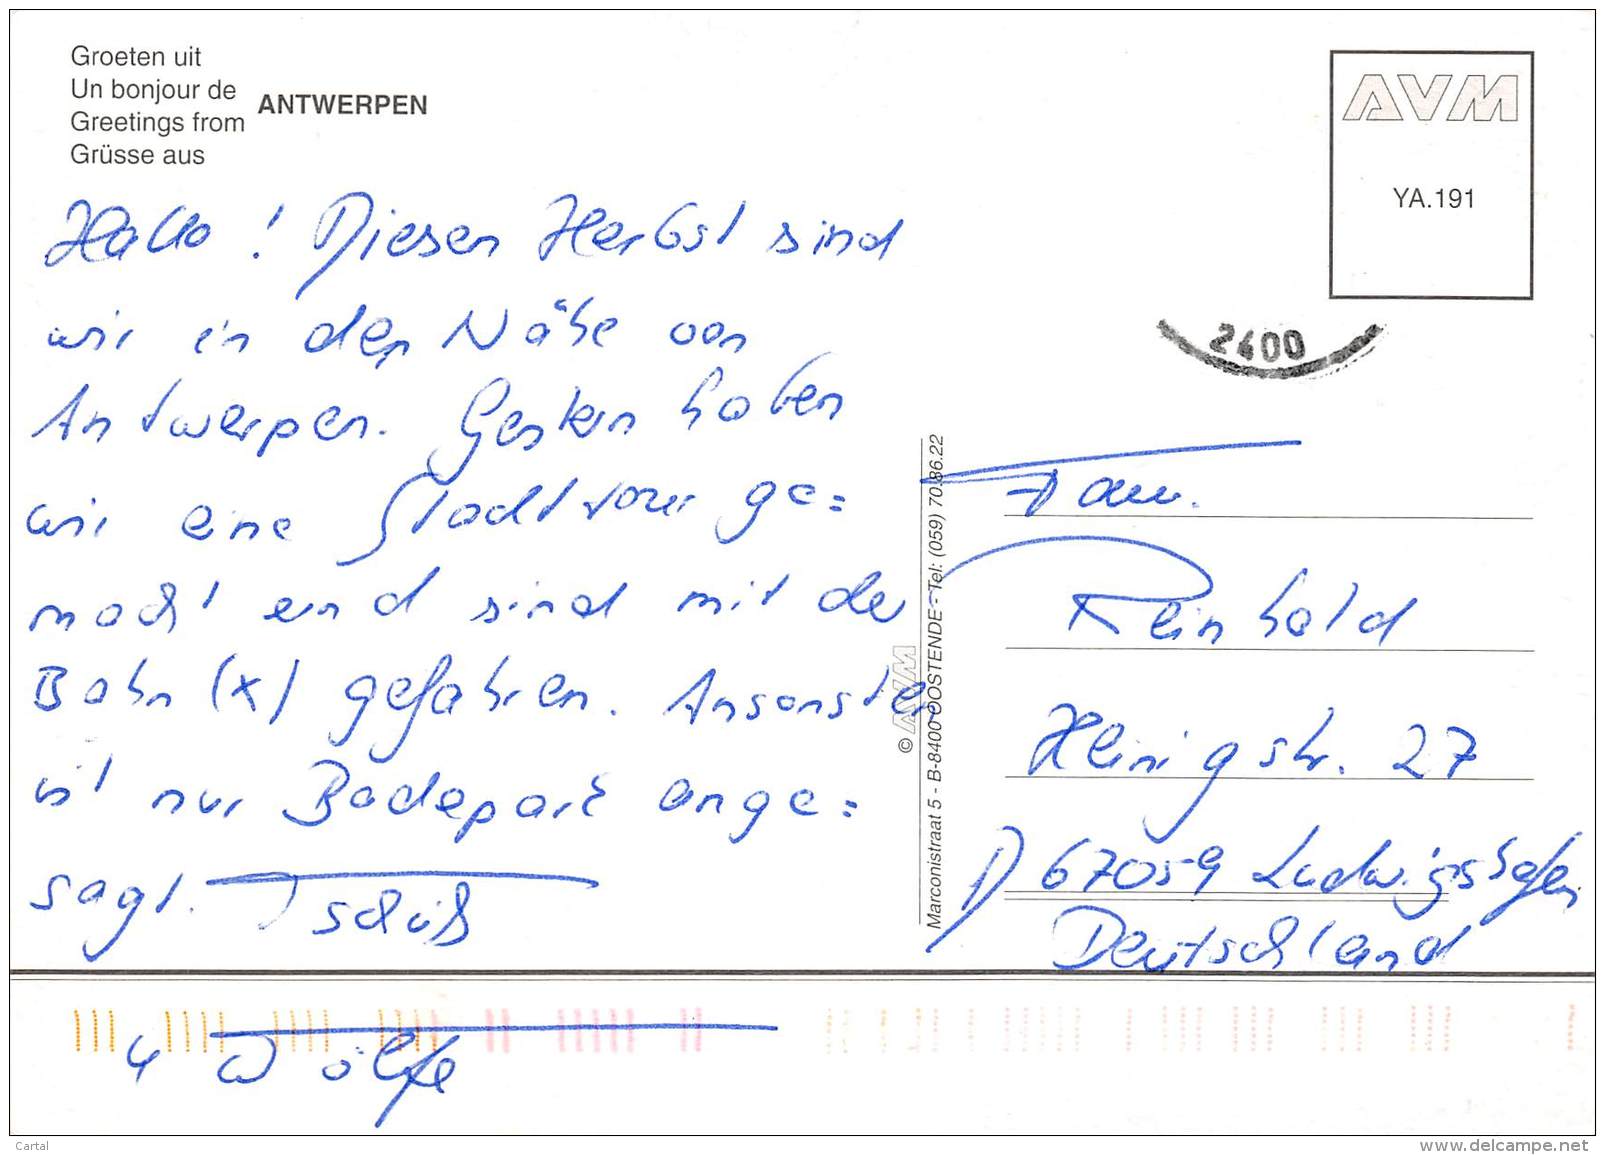 Groeten uit
Un bonjour de
Greetings from
Grüsse aus
ANTWERPEN
AVM
YA.191
2400
Hallo ! Diesen Herbst sind
wir in der Nähe von
Antwerpen. Gestern haben
wir eine Stadttour ge=
macht und sind mit der
Bahn (x) gefahren. Ansonsten
ist nur Badepark ange=
sagt. Tschüß
4 Wölfe
© AVM
Marconistraat 5 - B-8400 OOSTENDE - Tel: (059) 70.86.22
Fam.
Reinhold
Heinigstr. 27
D 67059 Ludwigshafen
Deutschland
Cartal
www.delcampe.net